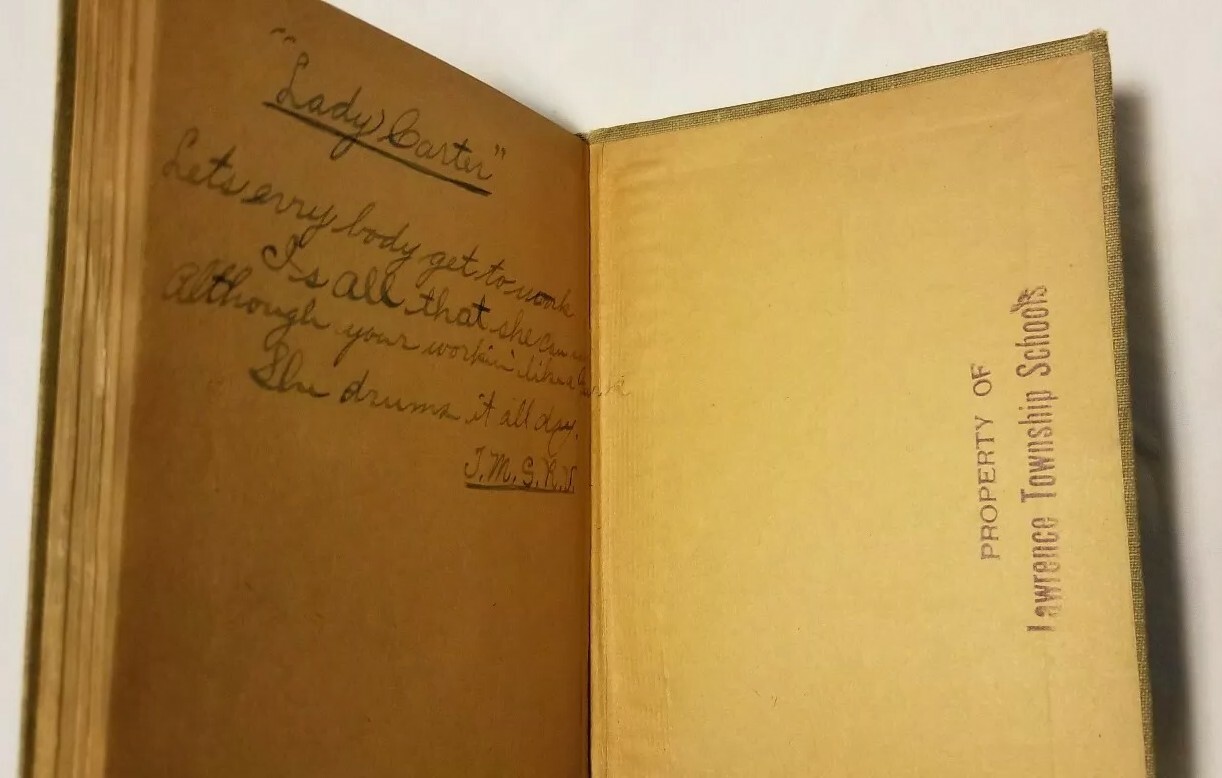 "Lady Carter"
Lets evry body get to work
Is all that she can
Although your workin' like a
She drums it all day.
PROPERTY OF
Lawrence Township Schools